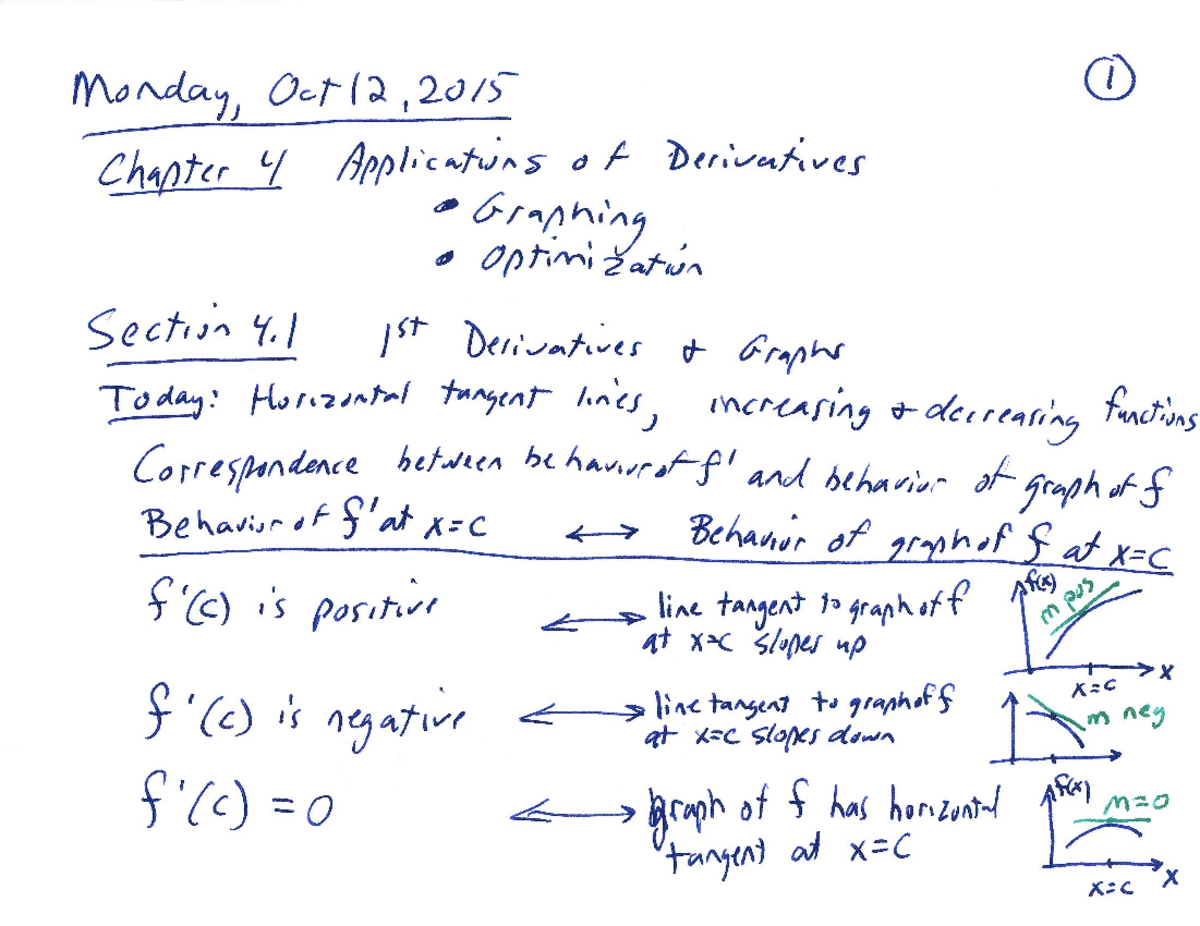 Monday, Oct 12, 2015
①
Chapter 4 Applications of Derivatives
• Graphing
• Optimization
Section 4.1 1st Derivatives & Graphs
Today: Horizontal tangent lines, increasing & decreasing functions
Correspondence between behavior of f' and behavior of graph of f
Behavior of f' at x=c ↔ Behavior of graph of f at x=c
f'(c) is positive ↔ line tangent to graph of f
at x=c slopes up
f(x)
m pos
x=c
x
f'(c) is negative ↔ line tangent to graph of f
at x=c slopes down
m neg
f'(c) = 0 ↔ graph of f has horizontal
tangent at x=c
f(x)
m=0
x=c
x